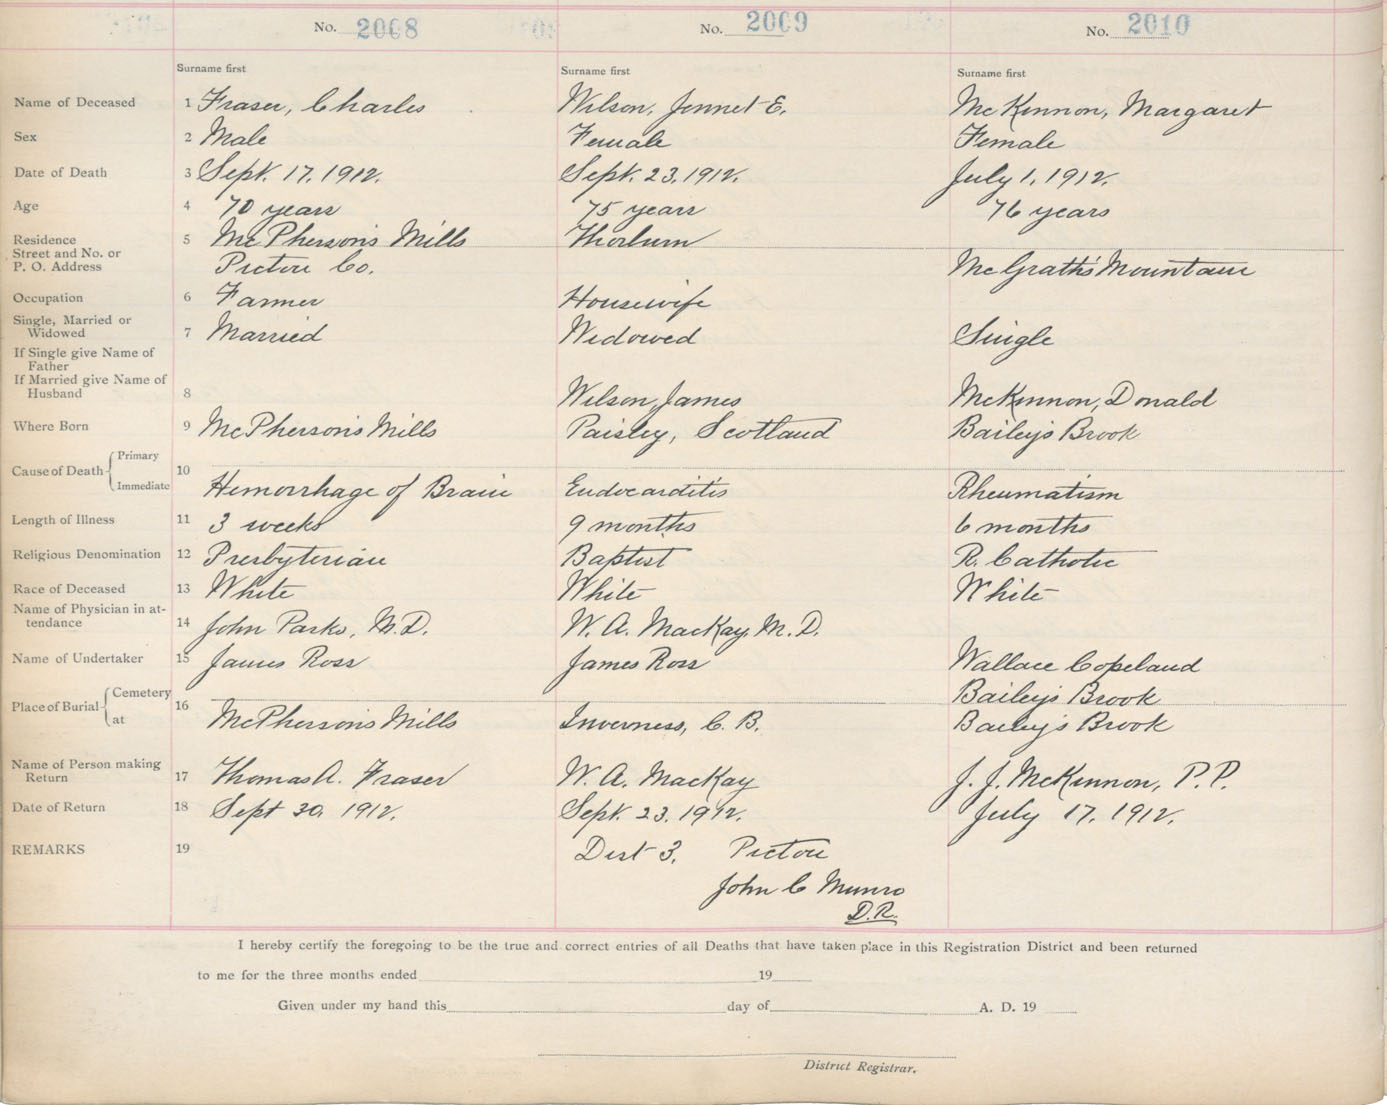 No. 2008 No. 2009 No. 2010
Surname first Surname first Surname first
Name of Deceased 1 Fraser, Charles Wilson, Jennet E. McKinnon, Margaret
Sex 2 Male Female Female
Date of Death 3 Sept. 17, 1912. Sept. 23, 1912. July 1, 1912.
Age 4 70 years 75 years 76 years
Residence 5 McPherson's Mills Thorburn
Street and No. or
P. O. Address Pictou Co. McGrath's Mountain
Occupation 6 Farmer Housewife
Single, Married or
Widowed 7 Married Widowed Single
If Single give Name of
Father
If Married give Name of
Husband 8 Wilson, James McKinnon, Donald
Where Born 9 McPherson's Mills Paisley, Scotland Bailey's Brook
Cause of Death Primary 10
Immediate Hemorrhage of Brain Endocarditis Rheumatism
Length of Illness 11 3 weeks 9 months 6 months
Religious Denomination 12 Presbyterian Baptist R. Catholic
Race of Deceased 13 White White White
Name of Physician in at-
tendance 14 John Parks, M.D. W. A. MacKay, M. D.
Name of Undertaker 15 James Ross James Ross Wallace Copeland
Place of Burial Cemetery 16 Bailey's Brook
at McPherson's Mills Inverness, C. B. Bailey's Brook
Name of Person making
Return 17 Thomas A. Fraser W. A. MacKay J. J. McKinnon, P.P.
Date of Return 18 Sept 30, 1912. Sept. 23, 1912. July 17, 1912.
REMARKS 19 Dist 3. Pictou
John C Munro
D.R.
I hereby certify the foregoing to be the true and correct entries of all Deaths that have taken place in this Registration District and been returned
to me for the three months ended 19
Given under my hand this day of A. D. 19
District Registrar.